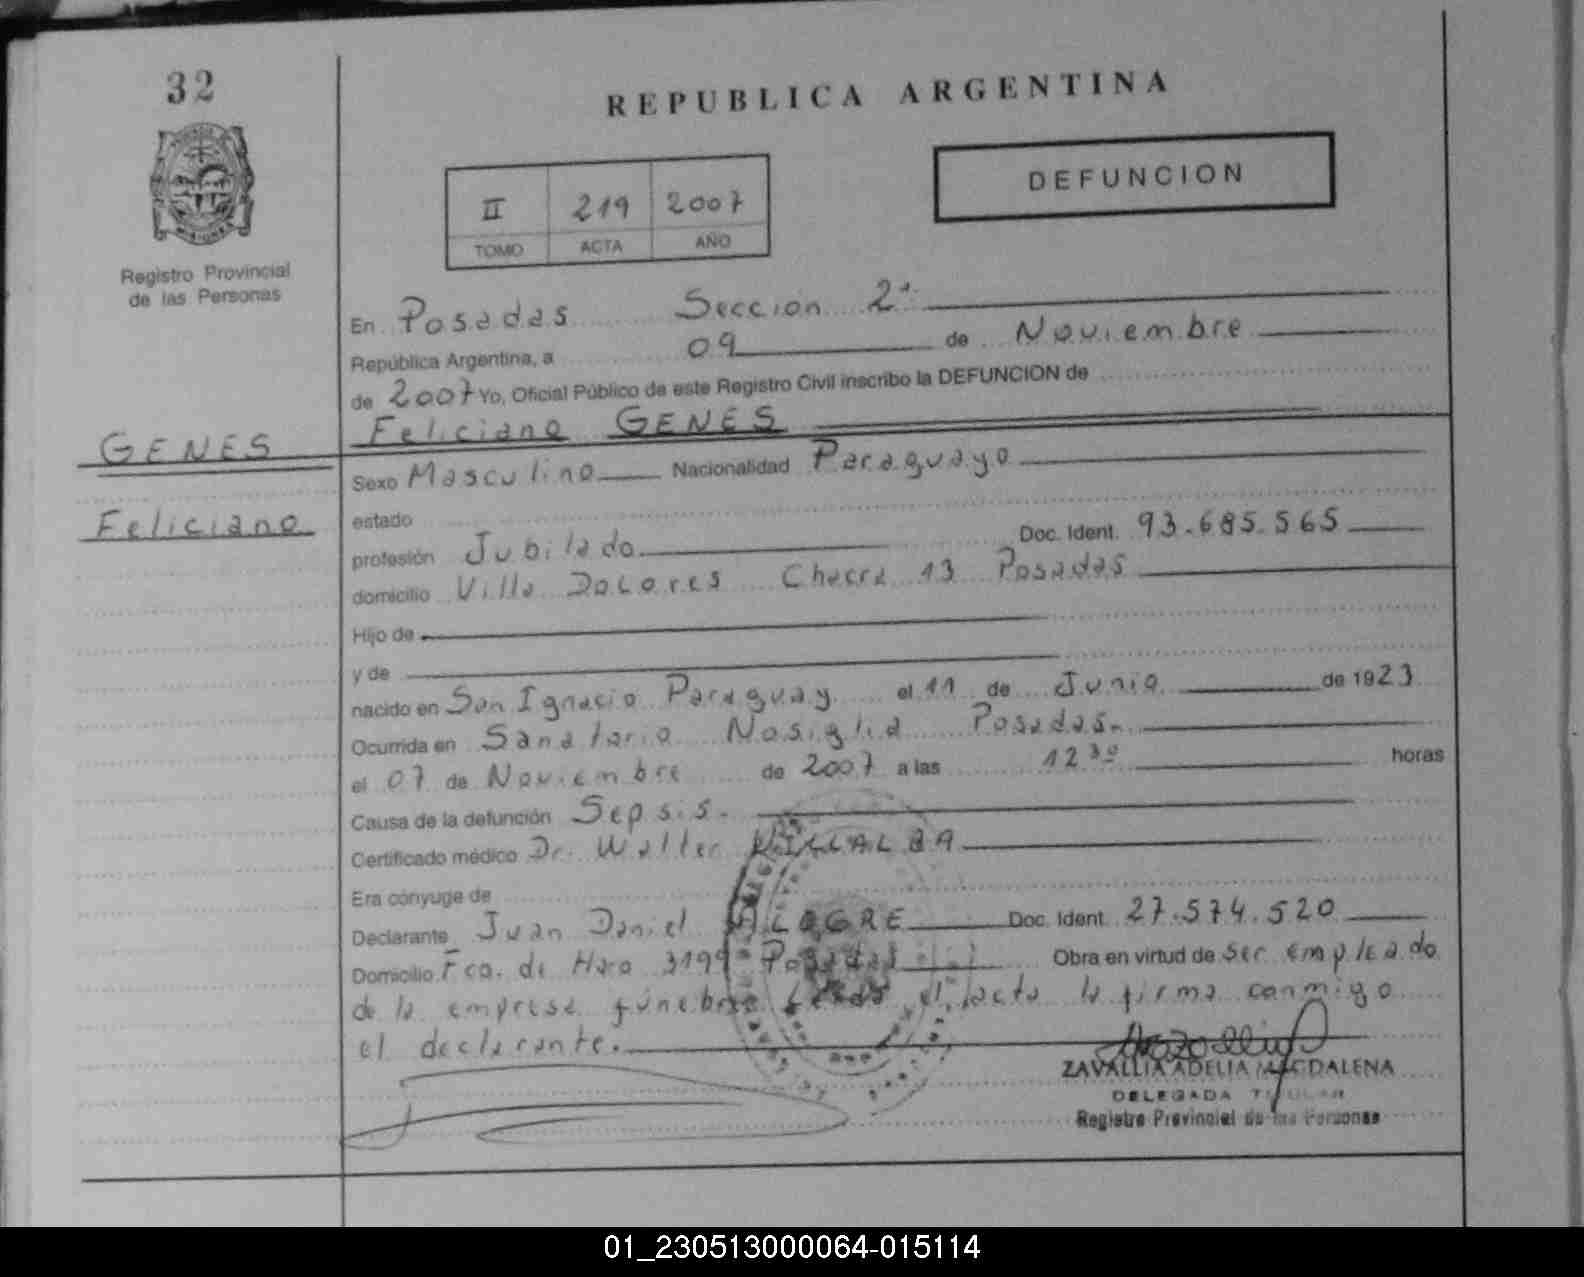 32
REPUBLICA ARGENTINA
DEFUNCION
II 219 2007
TOMO ACTA AÑO
Registro Provincial
de las Personas
En Posadas Sección 2ª
República Argentina, a 09 de Noviembre
de 2007 Yo, Oficial Público de este Registro Civil inscribo la DEFUNCION de
GENES
Feliciano GENES
Sexo Masculino Nacionalidad Paraguayo
Feliciano
estado
profesión Jubilado Doc. Ident. 93.685.565
domicilio Villa Dolores Chacra 13 Posadas
Hijo de
y de
nacido en San Ignacio Paraguay el 11 de Junio de 1923
Ocurrida en Sanatorio Nosiglia Posadas.
el 07 de Noviembre de 2007 a las 12 30 horas
Causa de la defunción Sepsis.
Certificado médico Dr. Walter VILLALBA
Era cónyuge de
Declarante Juan Daniel ALEGRE Doc. Ident. 27.574.520
Domicilio Fco. de Haro 3199 Posadas Obra en virtud de ser empleado
de la empresa fúnebre el acta la firma conmigo
el declarante.
ZAVALLIA ADELIA MAGDALENA
DELEGADA TITULAR
Registro Provincial de las Personas
01_230513000064-015114